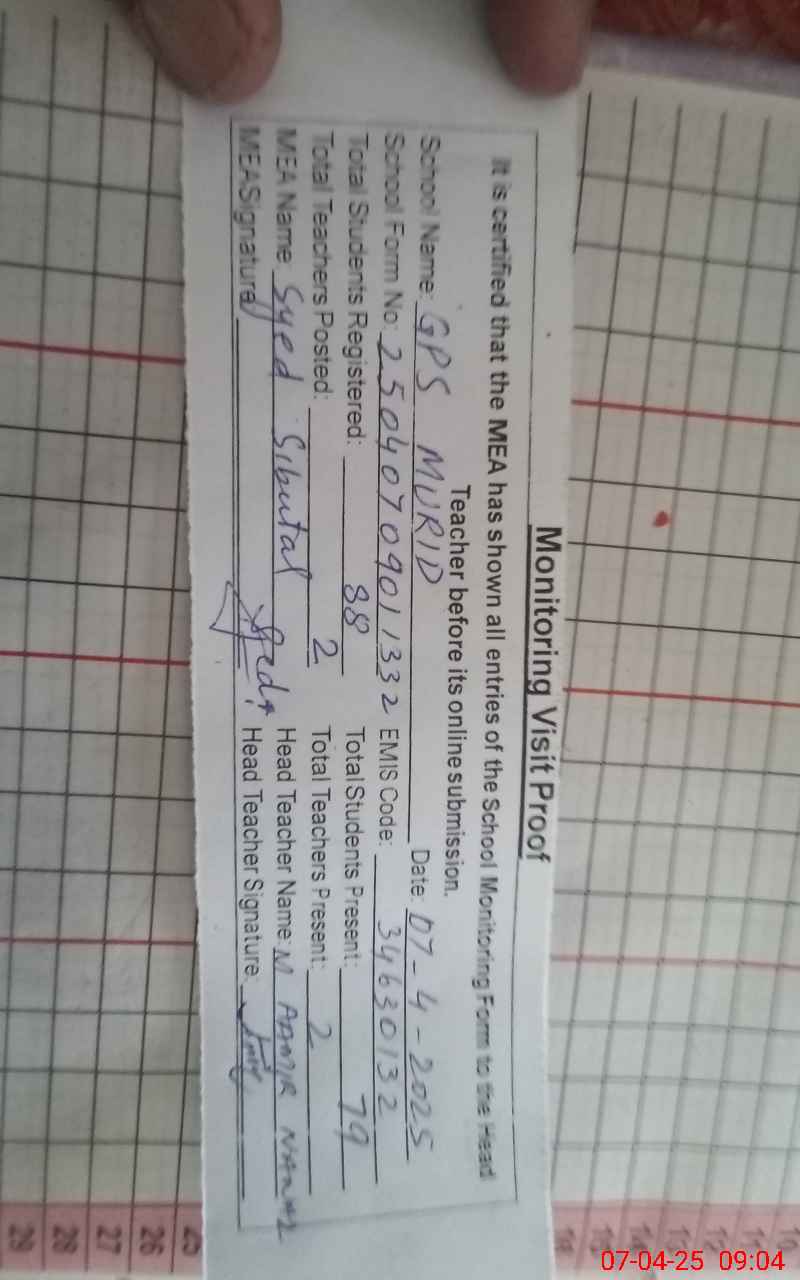 Monitoring Visit Proof
It is certified that the MEA has shown all entries of the School Monitoring Form to the Head
Teacher before its online submission.
School Name: GPS MURID Date: 07-4-2025
School Form No: 25040709011332 EMIS Code: 34630132
Total Students Registered: 88 Total Students Present: 79
Total Teachers Posted: 2 Total Teachers Present: 2
MEA Name: Syed Sibutal Head Teacher Name: M AAMIR
MEA Signature Head Teacher Signature:
10
11
12
13
14
15
16
25
26
27
28
29
07-04-25 09:04